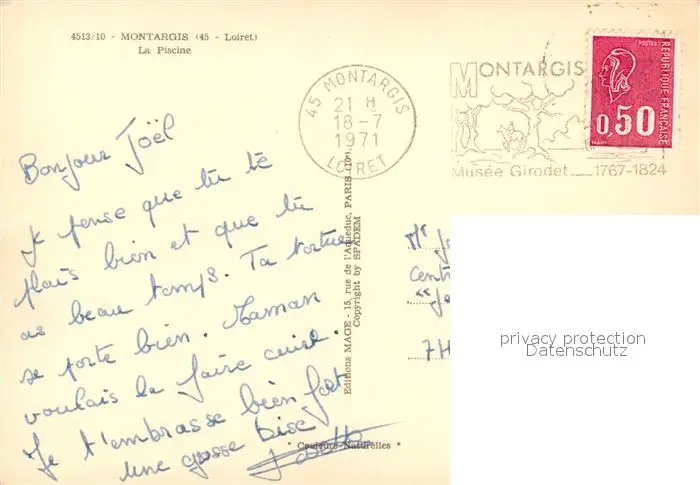 4513/10 - MONTARGIS (45 - Loiret)
La Piscine
45 MONTARGIS
21 H
18-7
1971
LOIRET
MONTARGIS
Musée Girodet 1767-1824
POSTES
REPUBLIQUE FRANÇAISE
0,50
Bonjour Joël
je pense que tu te
plais bien et que tu
as beau temps. Ta tortue
se porte bien. Maman
voulais la faire cuire.
Je t'embrasse bien fort
une grosse bise
Editions MAGE - 15, rue de l'Aqueduc, PARIS (10e)
Copyright by SPADEM
" Couleurs Naturelles "
Centr
privacy protection
Datenschutz